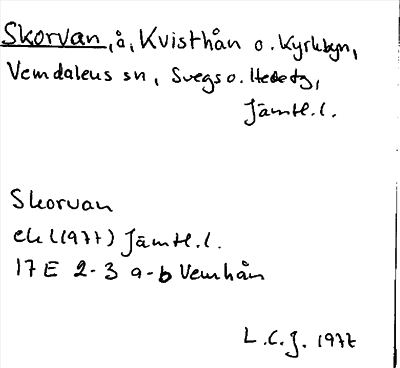 Skorvan, å, Kvisthån o. Kyrkbyn,
Vemdalens sn, Svegs o. Hede tg,
Jämtl.l.
Skorvan
ek l (1977) Jämtl.l.
17 E 2-3 a-b Vemhån
L.C.J. 1977